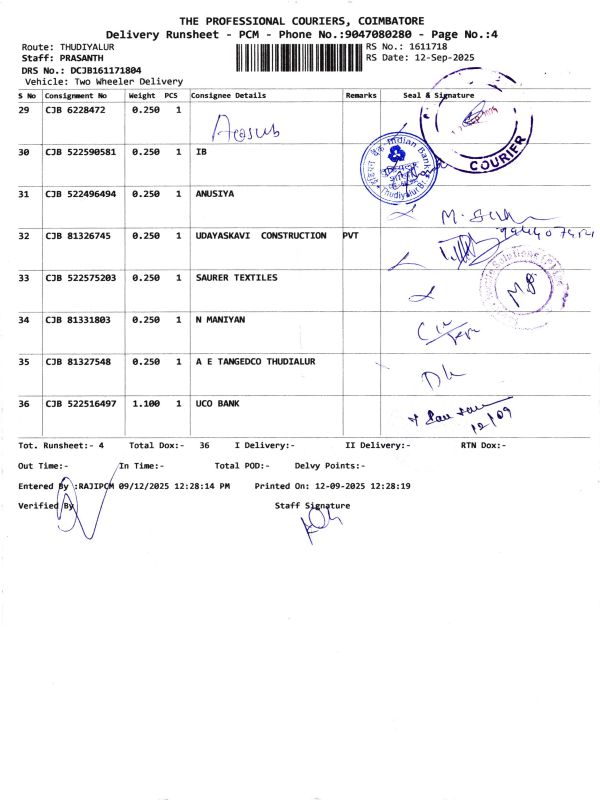 THE PROFESSIONAL COURIERS, COIMBATORE
Delivery Runsheet - PCM - Phone No.:9047080280 - Page No.:4
Route: THUDIYALUR
Staff: PRASANTH
DRS No.: DCJB161171804
Vehicle: Two Wheeler Delivery
RS No.: 1611718
RS Date: 12-Sep-2025
S No Consignment No Weight PCS Consignee Details Remarks Seal & Signature
29 CJB 6228472 0.250 1
COURIER
30 CJB 522590581 0.250 1 IB
Indian Bank
31 CJB 522496494 0.250 1 ANUSIYA
32 CJB 81326745 0.250 1 UDAYASKAVI CONSTRUCTION PVT
33 CJB 522575203 0.250 1 SAURER TEXTILES
34 CJB 81331803 0.250 1 N MANIYAN
35 CJB 81327548 0.250 1 A E TANGEDCO THUDIALUR
36 CJB 522516497 1.100 1 UCO BANK
12/09
Tot. Runsheet:- 4 Total Dox:- 36 I Delivery:- II Delivery:- RTN Dox:-
Out Time:- In Time:- Total POD:- Delvy Points:-
Entered By :RAJIPCM 09/12/2025 12:28:14 PM Printed On: 12-09-2025 12:28:19
Verified By Staff Signature